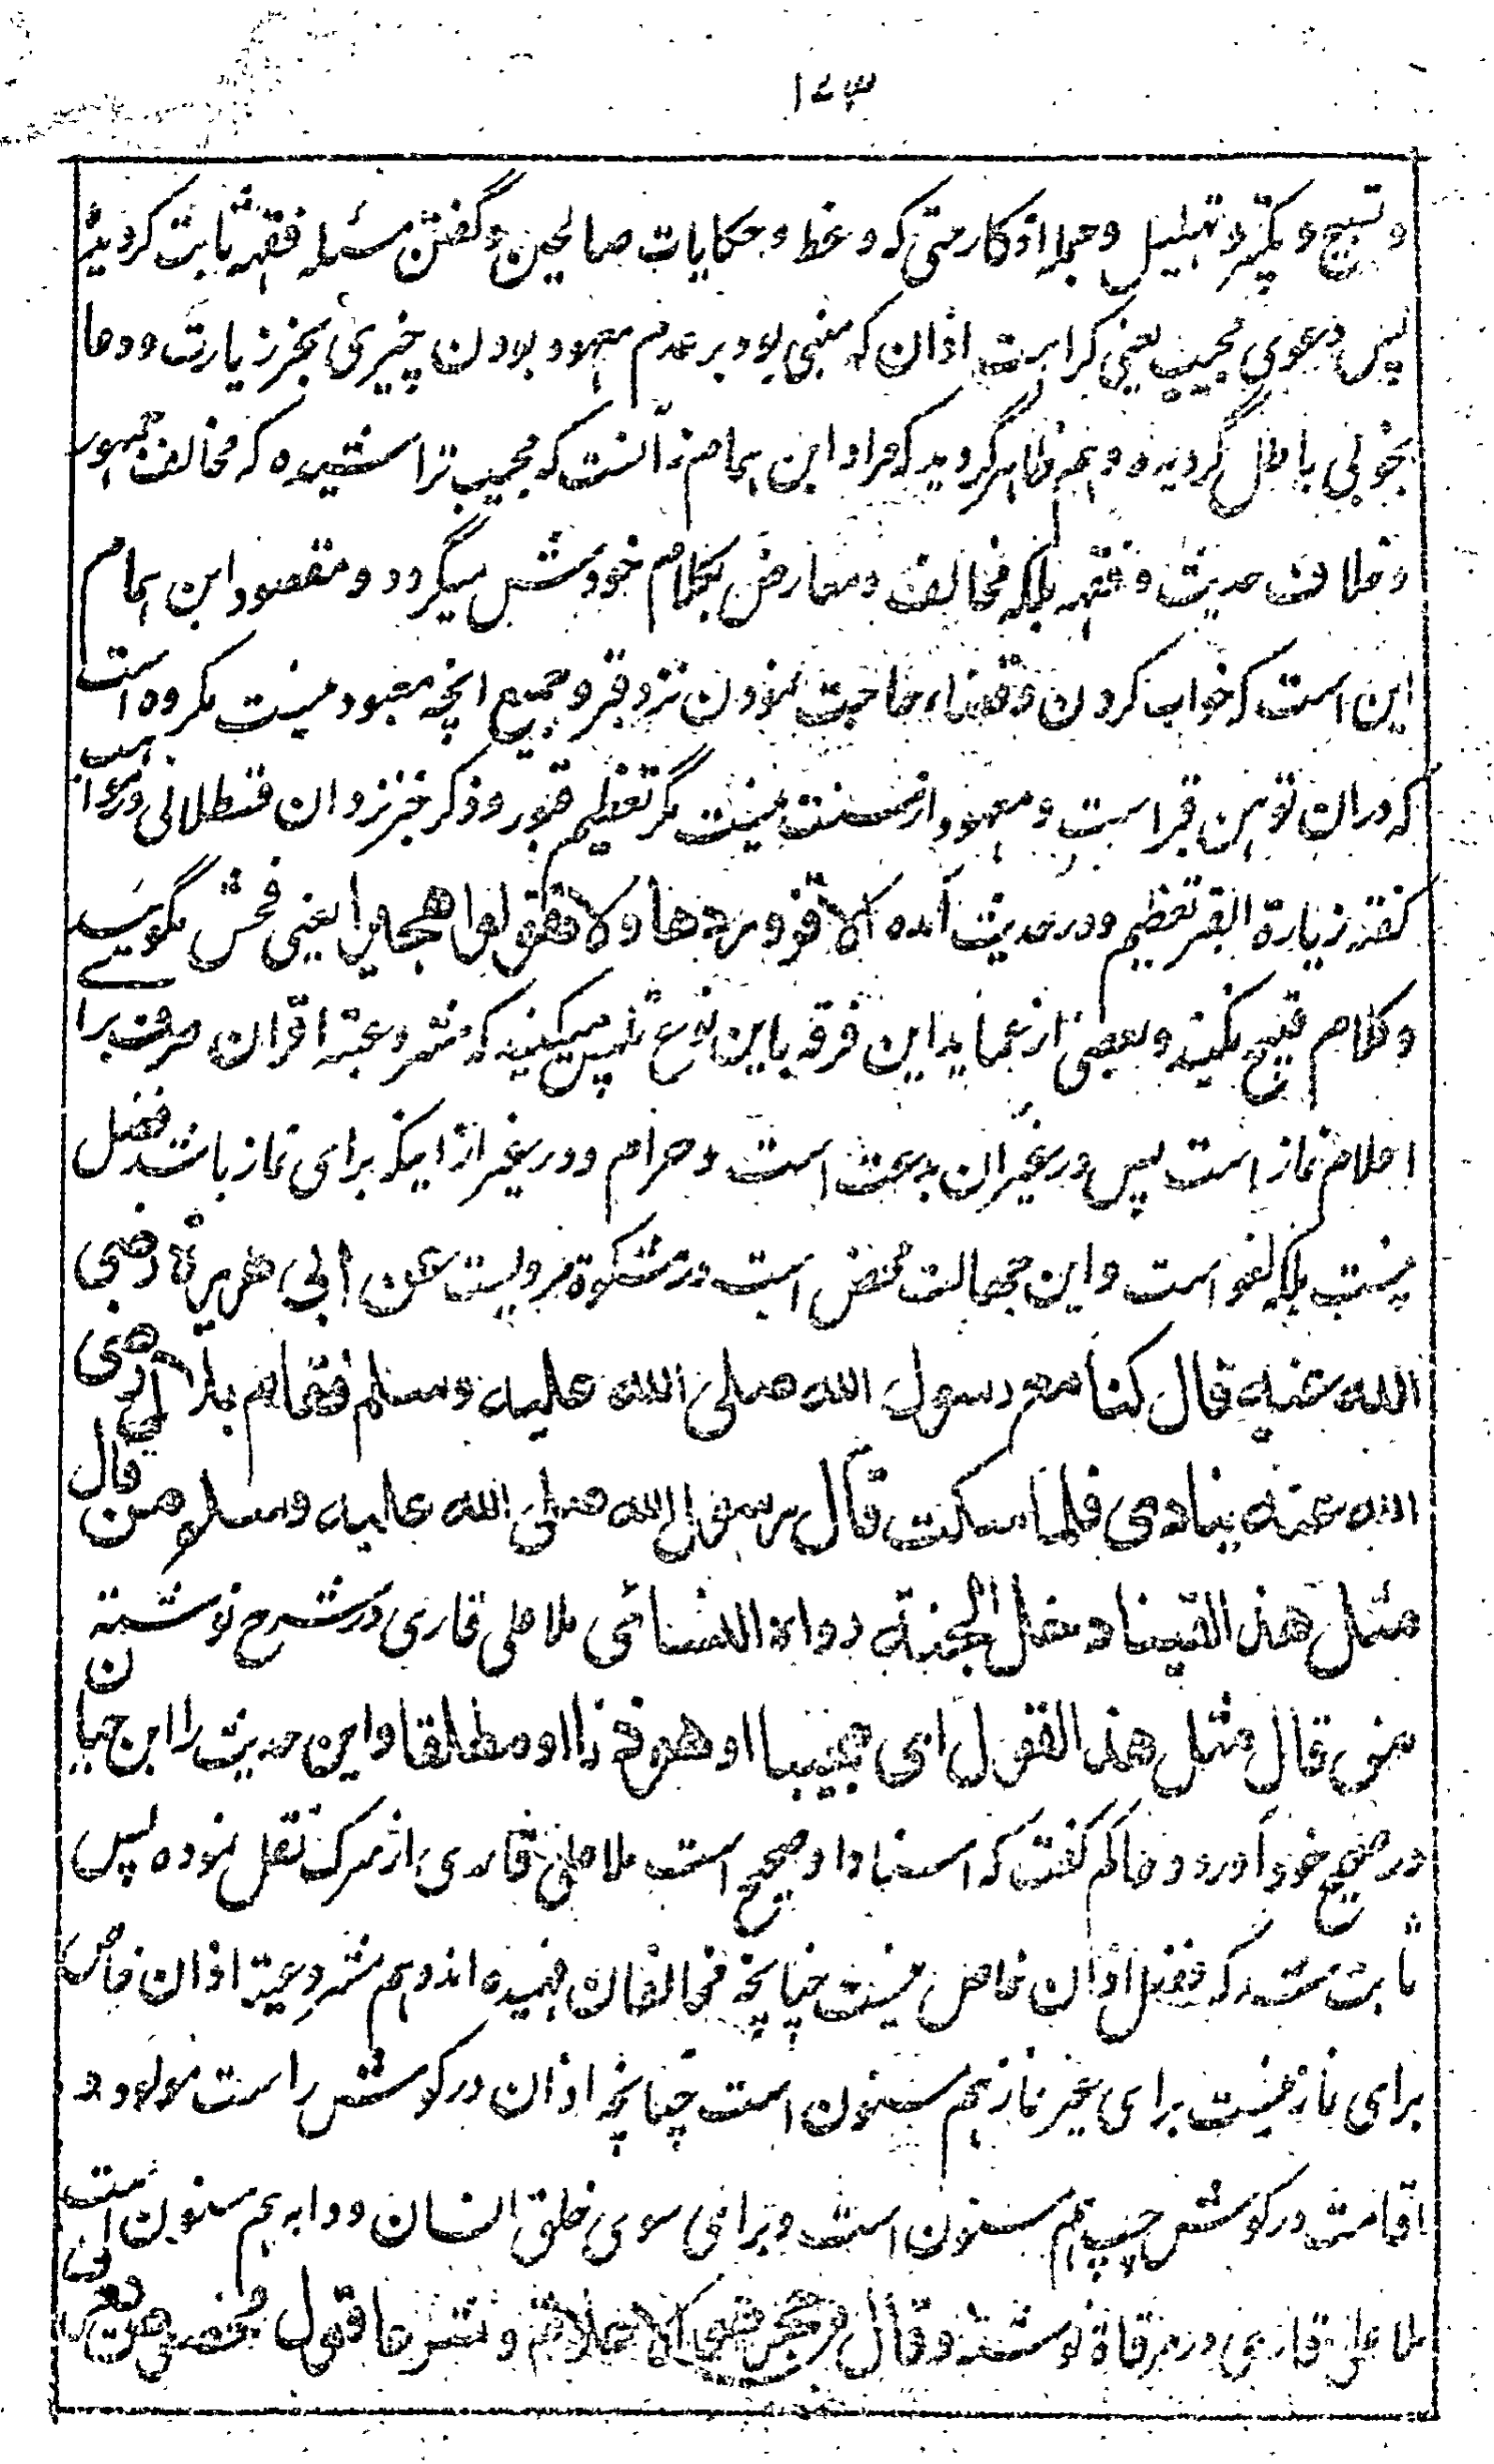 ۱۷۳
و تسبیح و تکبیر و تهلیل و جمله اذکار حتی که وعظ و حکایات صالحین و گفتن مسئله فقهه ثابت کردیم
پس دعوی مجیب یعنی کراهت اذان که مبنی بود بر عدم معهود بودن چیزی بجز زیارت و دعا
بخوبی باطل گردیده و هم ظاهر گردید که مراد ابن الهمام نه آنست که مجیب تراشیده که مخالف جمهور
و خلاف حدیث و فقهه بلکه مخالف و معارض بکلام خودش میگردد و مقصود ابن الهمام
این است که خواب کردن و قضاء حاجت نمودن نزد قبر و جمیع انچه معهود نیست مکروه است
که دران توهین قبر است و معهود از سنت نیست مگر تعظیم قبور و ذکر خیر نزد ان قسطلانی در
گفته زیارة القبر تعظیم و در حدیث آمده الا فزوروها ولا تقولوا هجرا یعنی فحش مگویید
و کلام قبیح نکنید و بعضی از عماید این فرقه باین نوع تلبیس میکنند که مشروعیة اذان صرف برای
اعلام نماز است پس در غیر ان بدعت است و حرام و در غیر از اینکه برای نماز باشد فضل
نیست بلکه لغو است و این جهالت محض است در مشکوة مرویست عن ابی هریرة رضی
الله عنه قال کنا مع رسول الله صلی الله علیه وسلم فقام بلال رضی
الله عنه ینادی فلما سکت قال رسول الله صلی الله علیه وسلم من قال
مثل هذا یقینا دخل الجنة رواه النسائی ملا علی قاری در شرح نوشته
من قال مثل هذا القول ای مجیبا او مؤذنا او مطلقا و این حدیث را ابن حبان
در صحیح خود آورد و حاکم گفت که اسناد او صحیح است ملا علی قاری از میرک نقل نموده پس
ثابت شد که فضل اذان خاص نیست چنانچه مخالفان فهمیده اند و هم مشروعیة اذان خاص
برای نماز نیست برای غیر نماز هم مسنون است چنانچه اذان در گوش راست مولود و
اقامت در گوش چپ هم مسنون است و برای سوی خلق انسان و دابه هم مسنون است
ملا علی قاری در مرقاة نوشته وقال ابن حجر الاعلام وشرعا قول مخصوص